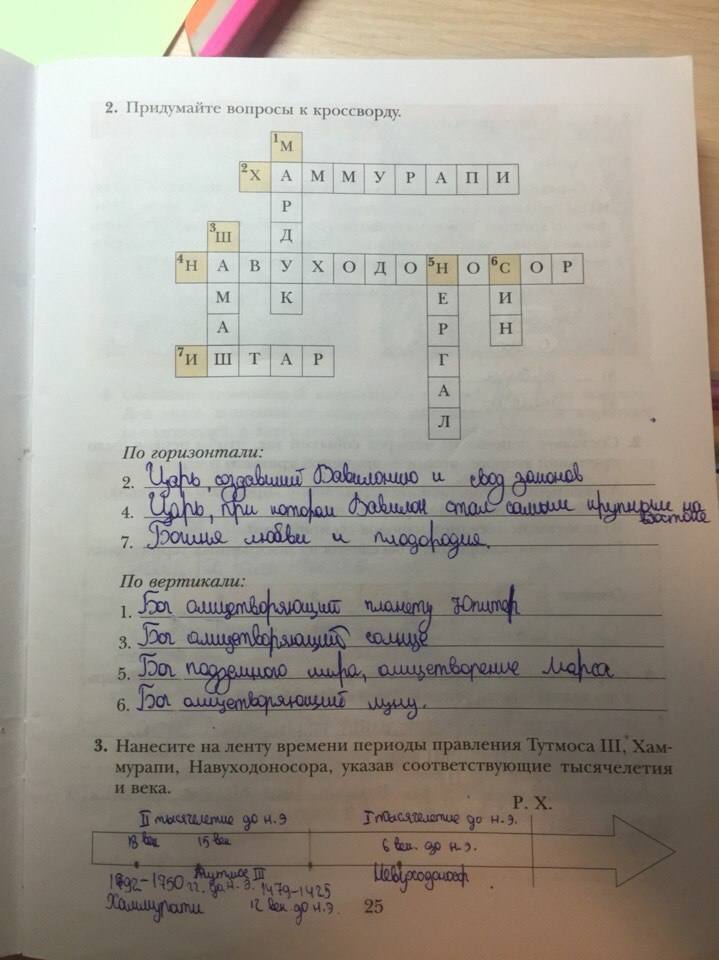 2. Придумайте вопросы к кроссворду.
1М
2Х А М М У Р А П И
Р
3Ш Д
4Н А В У Х О Д О 5Н О 6С О Р
М К Е И
А Р Н
7И Ш Т А Р Г
А
Л
По горизонтали:
2. Царь, создавший Вавилонию и свод законов
4. Царь, при котором Вавилон стал самым крупным на
востоке
7. Богиня любви и плодородия.
По вертикали:
1. Бог олицетворяющий планету Юпитер
3. Бог олицетворяющий солнце
5. Бог подземного мира, олицетворение Марса
6. Бог олицетворяющий луну.
3. Нанесите на ленту времени периоды правления Тутмоса III, Хам-
мурапи, Навуходоносора, указав соответствующие тысячелетия
и века.
Р. Х.
II тысячелетие до н.э I тысячелетие до н.э.
18 век 15 век 6 век. до н.э.
Тутмос III
1792-1750 гг. до н.э. 1479-1425
Хаммурапи 12 век. до н.э.
25